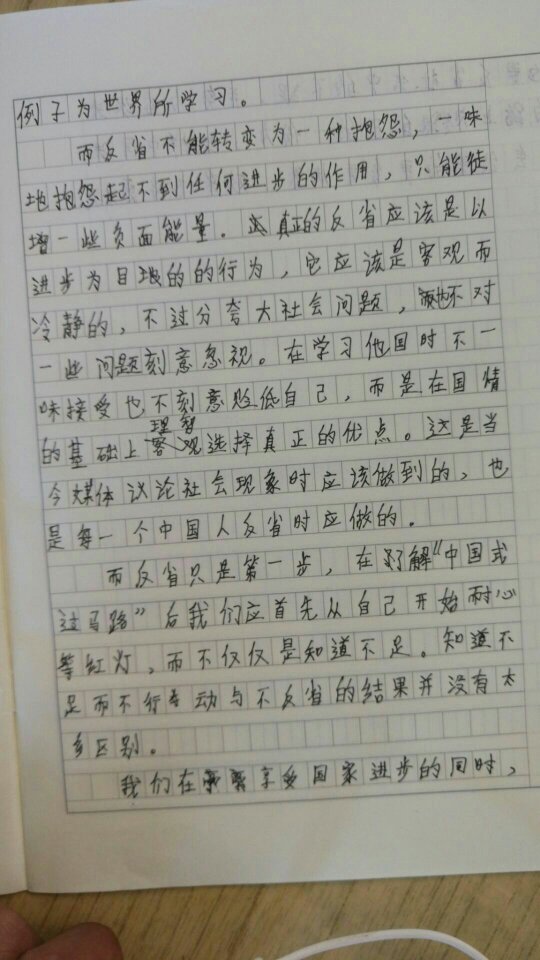 例子为世界所学习。
而反省不能转变为一种抱怨，一味
地抱怨起不到任何进步的作用，只能徒
增一些负面能量。真正的反省应该是以
进步为目地的的行为，它应该是客观而
冷静的，不过分夸大社会问题，也不对
一些问题刻意忽视。在学习他国时不一
味接受也不刻意贬低自己，而是在国情
理智
的基础上选择真正的优点。这是当
今媒体议论社会现象时应该做到的，也
是每一个中国人反省时应做的。
而反省只是第一步，在了解“中国式
过马路”后我们应首先从自己开始耐心
等红灯，而不仅仅是知道不足。知道不
足而不行动与不反省的结果并没有太
多区别。
我们在享受国家进步的同时，